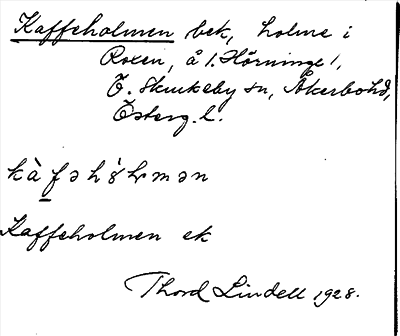 Kaffeholmen bek, holme i
Roxen, å 1. Hörninge 1,
Ö. Skrukeby sn, Åkerbohd,
Österg. l.
kàfəhɷ̀lmən
Kaffeholmen ek
Thord Lindell 1928.